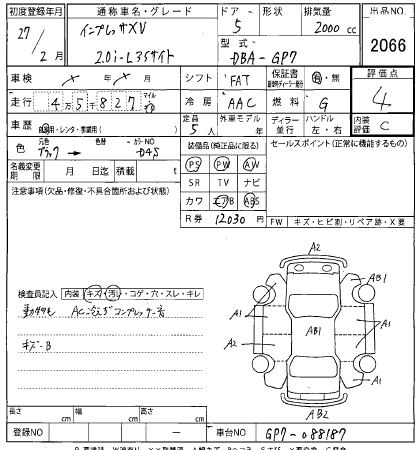 初度登録年月 通称車名・グレード ドア・形状 排気量 出品NO
27/2月 インプレッサXV 5 2000cc 2066
2.0i-L アイサイト 型式 DBA-GP7
車検 × / ×月 シフト FAT 保証書 有・無 評価点 4
走行 4万5千827 マイル 冷房 AAC 燃料 G
車歴 自家用・レンタ・事業用( ) 定員 5人 外車モデル年 ディーラー 並行 ハンドル 左・右 内装評価 C
色 元色 ブラック 色替 カラーNO D4S 装備品(純正品に限る) セールスポイント(正常に機能するもの)
名義変更期限 月 日迄 積載 t PS PW AW
注意事項(欠品・修復・不具合箇所および状態) SR TV ナビ
カワ エアB ABS
R券 12030円 FW キズ・ヒビ割・リペア跡・X要
A2
検査員記入 内装 キズ・汚れ・コゲ・穴・スレ・キレ AB1
A1 A1
キズ-B A2 AB1
A1
AB2
長さ cm 幅 cm 高さ cm
登録NO 車台NO GP7-088187